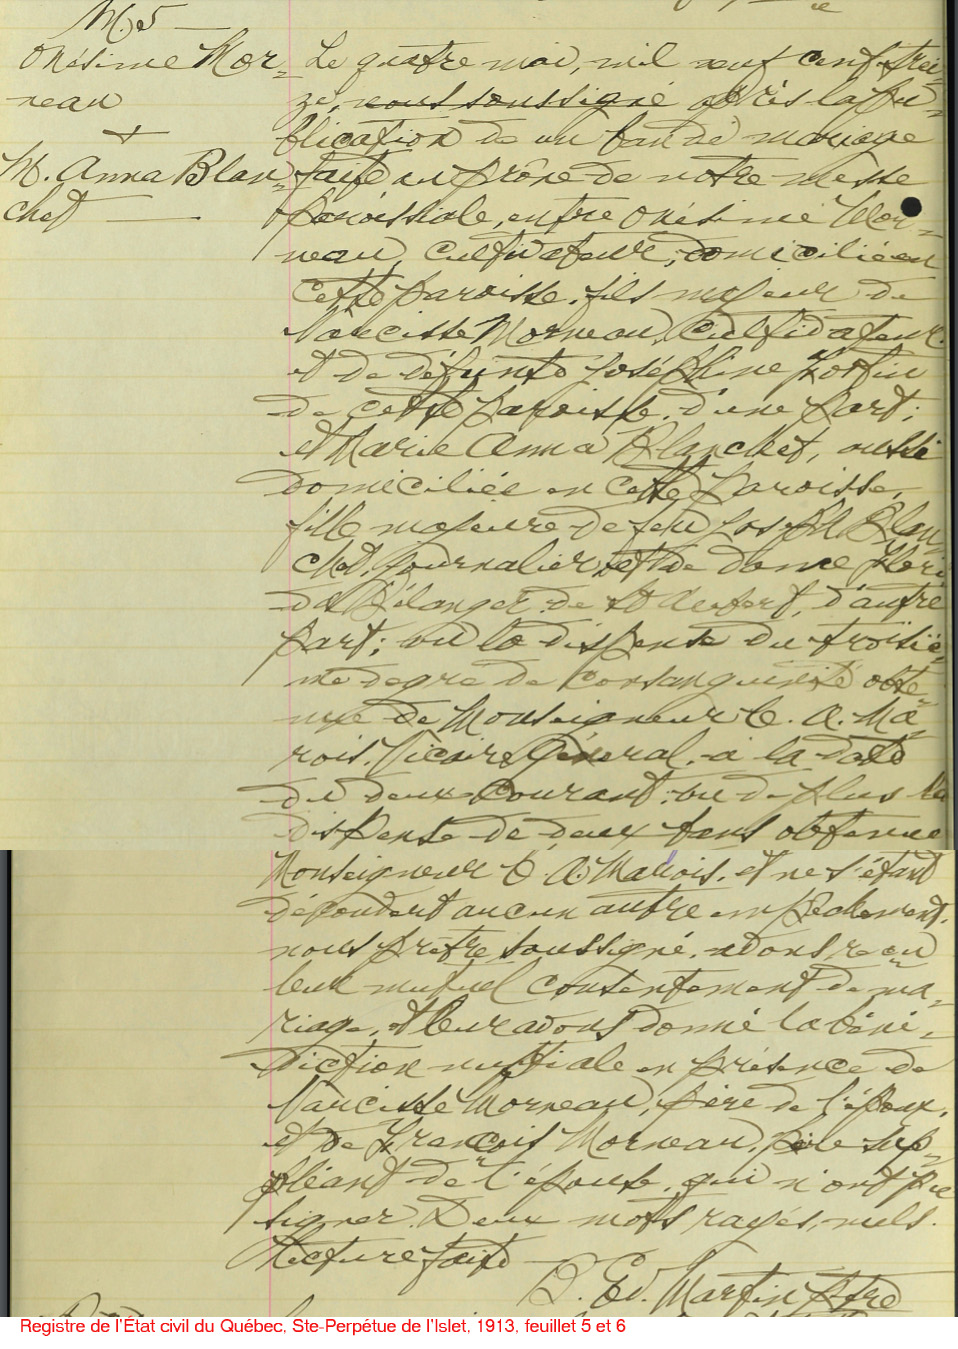 M. 5
Onésime Mor-
neau
+
M. Anna Blan-
chet
Le quatre mai, mil neuf cent trei-
ze, nous soussigné après la pu-
blication de un ban de mariage
faite au prône de notre messe
paroissiale, entre Onésime Mor-
neau, cultivateur, domicilié en
cette paroisse, fils majeur de
Narcisse Morneau, cultivateur
et de défunte Joséphine Fortin
de cette paroisse, d'une part;
et Marie Anna Blanchet, aussi
domiciliée en cette paroisse,
fille majeure de feu Joseph Blan-
chet, journalier, et de dame Flori-
da Bélanger de St Aubert, d'autre
part; vu la dispense du troisiè-
me degré de consanguinité obte-
nue de Monseigneur C. A. Ma-
rois, Vicaire Général, à la date
du deux courant; vu de plus la
dispense de deux bans obtenue
Monseigneur C. A. Marois, et ne s'étant
découvert aucun autre empêchement,
nous prêtre soussigné, avons reçu
leur mutuel consentement de ma-
riage, et leur avons donné la béné-
diction nuptiale en présence de
Narcisse Morneau, père de l'époux,
et de François Morneau, père sup-
pléant de l'épouse, qui n'ont pu
signer. Deux mots rayés, nuls.
Lecture faite
D. Ed. Martin Ptre
Registre de l'État civil du Québec, Ste-Perpétue de l'Islet, 1913, feuillet 5 et 6